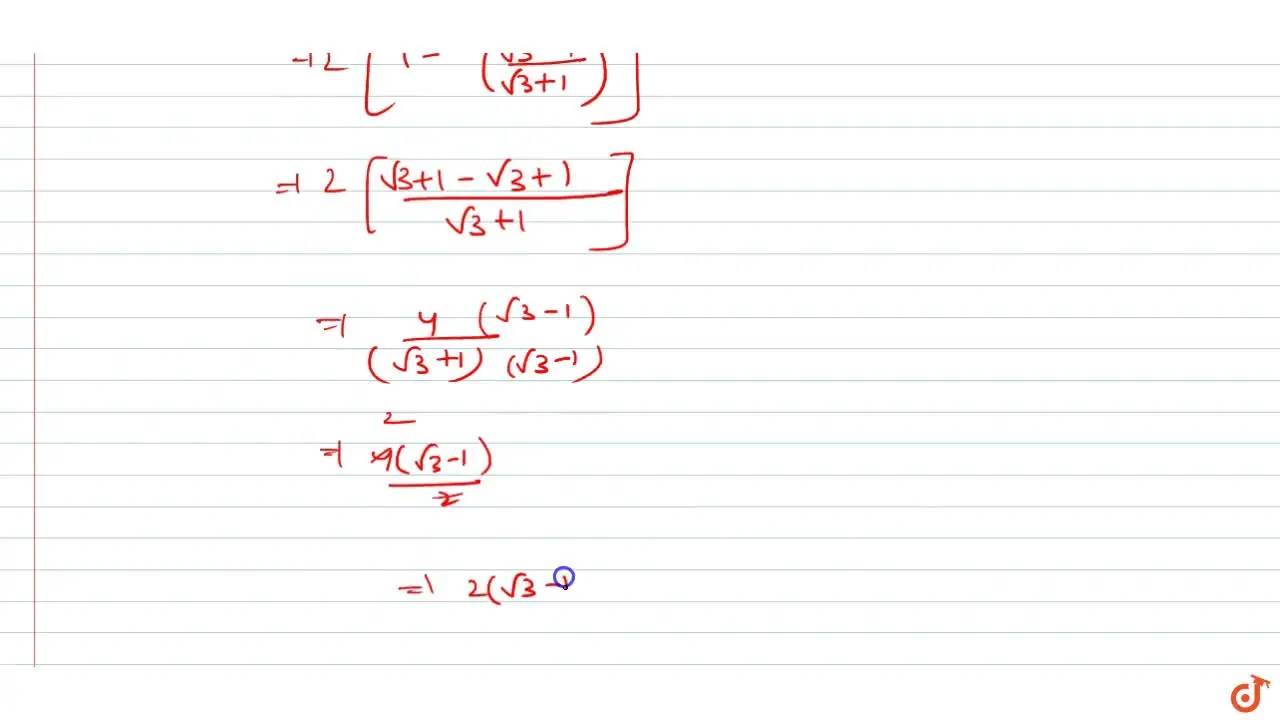 ⇒ 2 [ 1 - (√3 - 1 / √3+1) ]
⇒ 2 [ √3+1 - √3+1 / √3+1 ]
⇒ 4 (√3-1) / (√3+1) (√3-1)
2
⇒ 4(√3-1) / 2
⇒ 2(√3-1